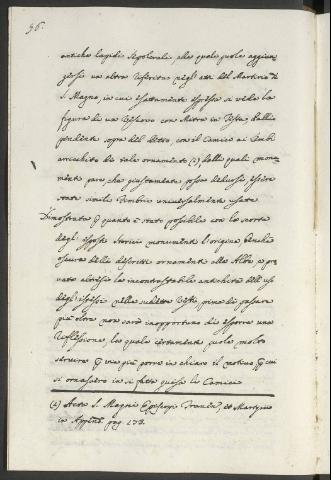 36.
antiche lapidi Sepolcrali, alle quali puole aggiun-
gersi un altra riferita negli atti del Martirio di
S. Magno, in cui esattamente espressa si vede la
figura di un Vescovo con Mitra in Testa, Pallio
pendente sopra del petto, con il Camice ai Lembi
arricchito di tale ornamento (2) dalli quali monu-
menti pare, che giustamente possa dedursi, essere
stati simili Lembi universalmente usati.
Dimostrata p quanto è stato possibile con la scorta
degli esposti Storici monumenti l'origine benchè
oscura delli descritti ornamenti alle Albe, e pro-
vata altresì la incontrastabile antichità dell'uso
degli istessi nelle suddette Vesti, prima di passare
più oltre non sarà inopportuno di esporre una
riflessione, la quale certamente puole molto
servire p via più porre in chiaro il motivo p cui
si ornassero in sì fatta guisa le Camici
(2) Acta S. Magni Episcopi Tranen. et Martyris
in Append. pag. 173.